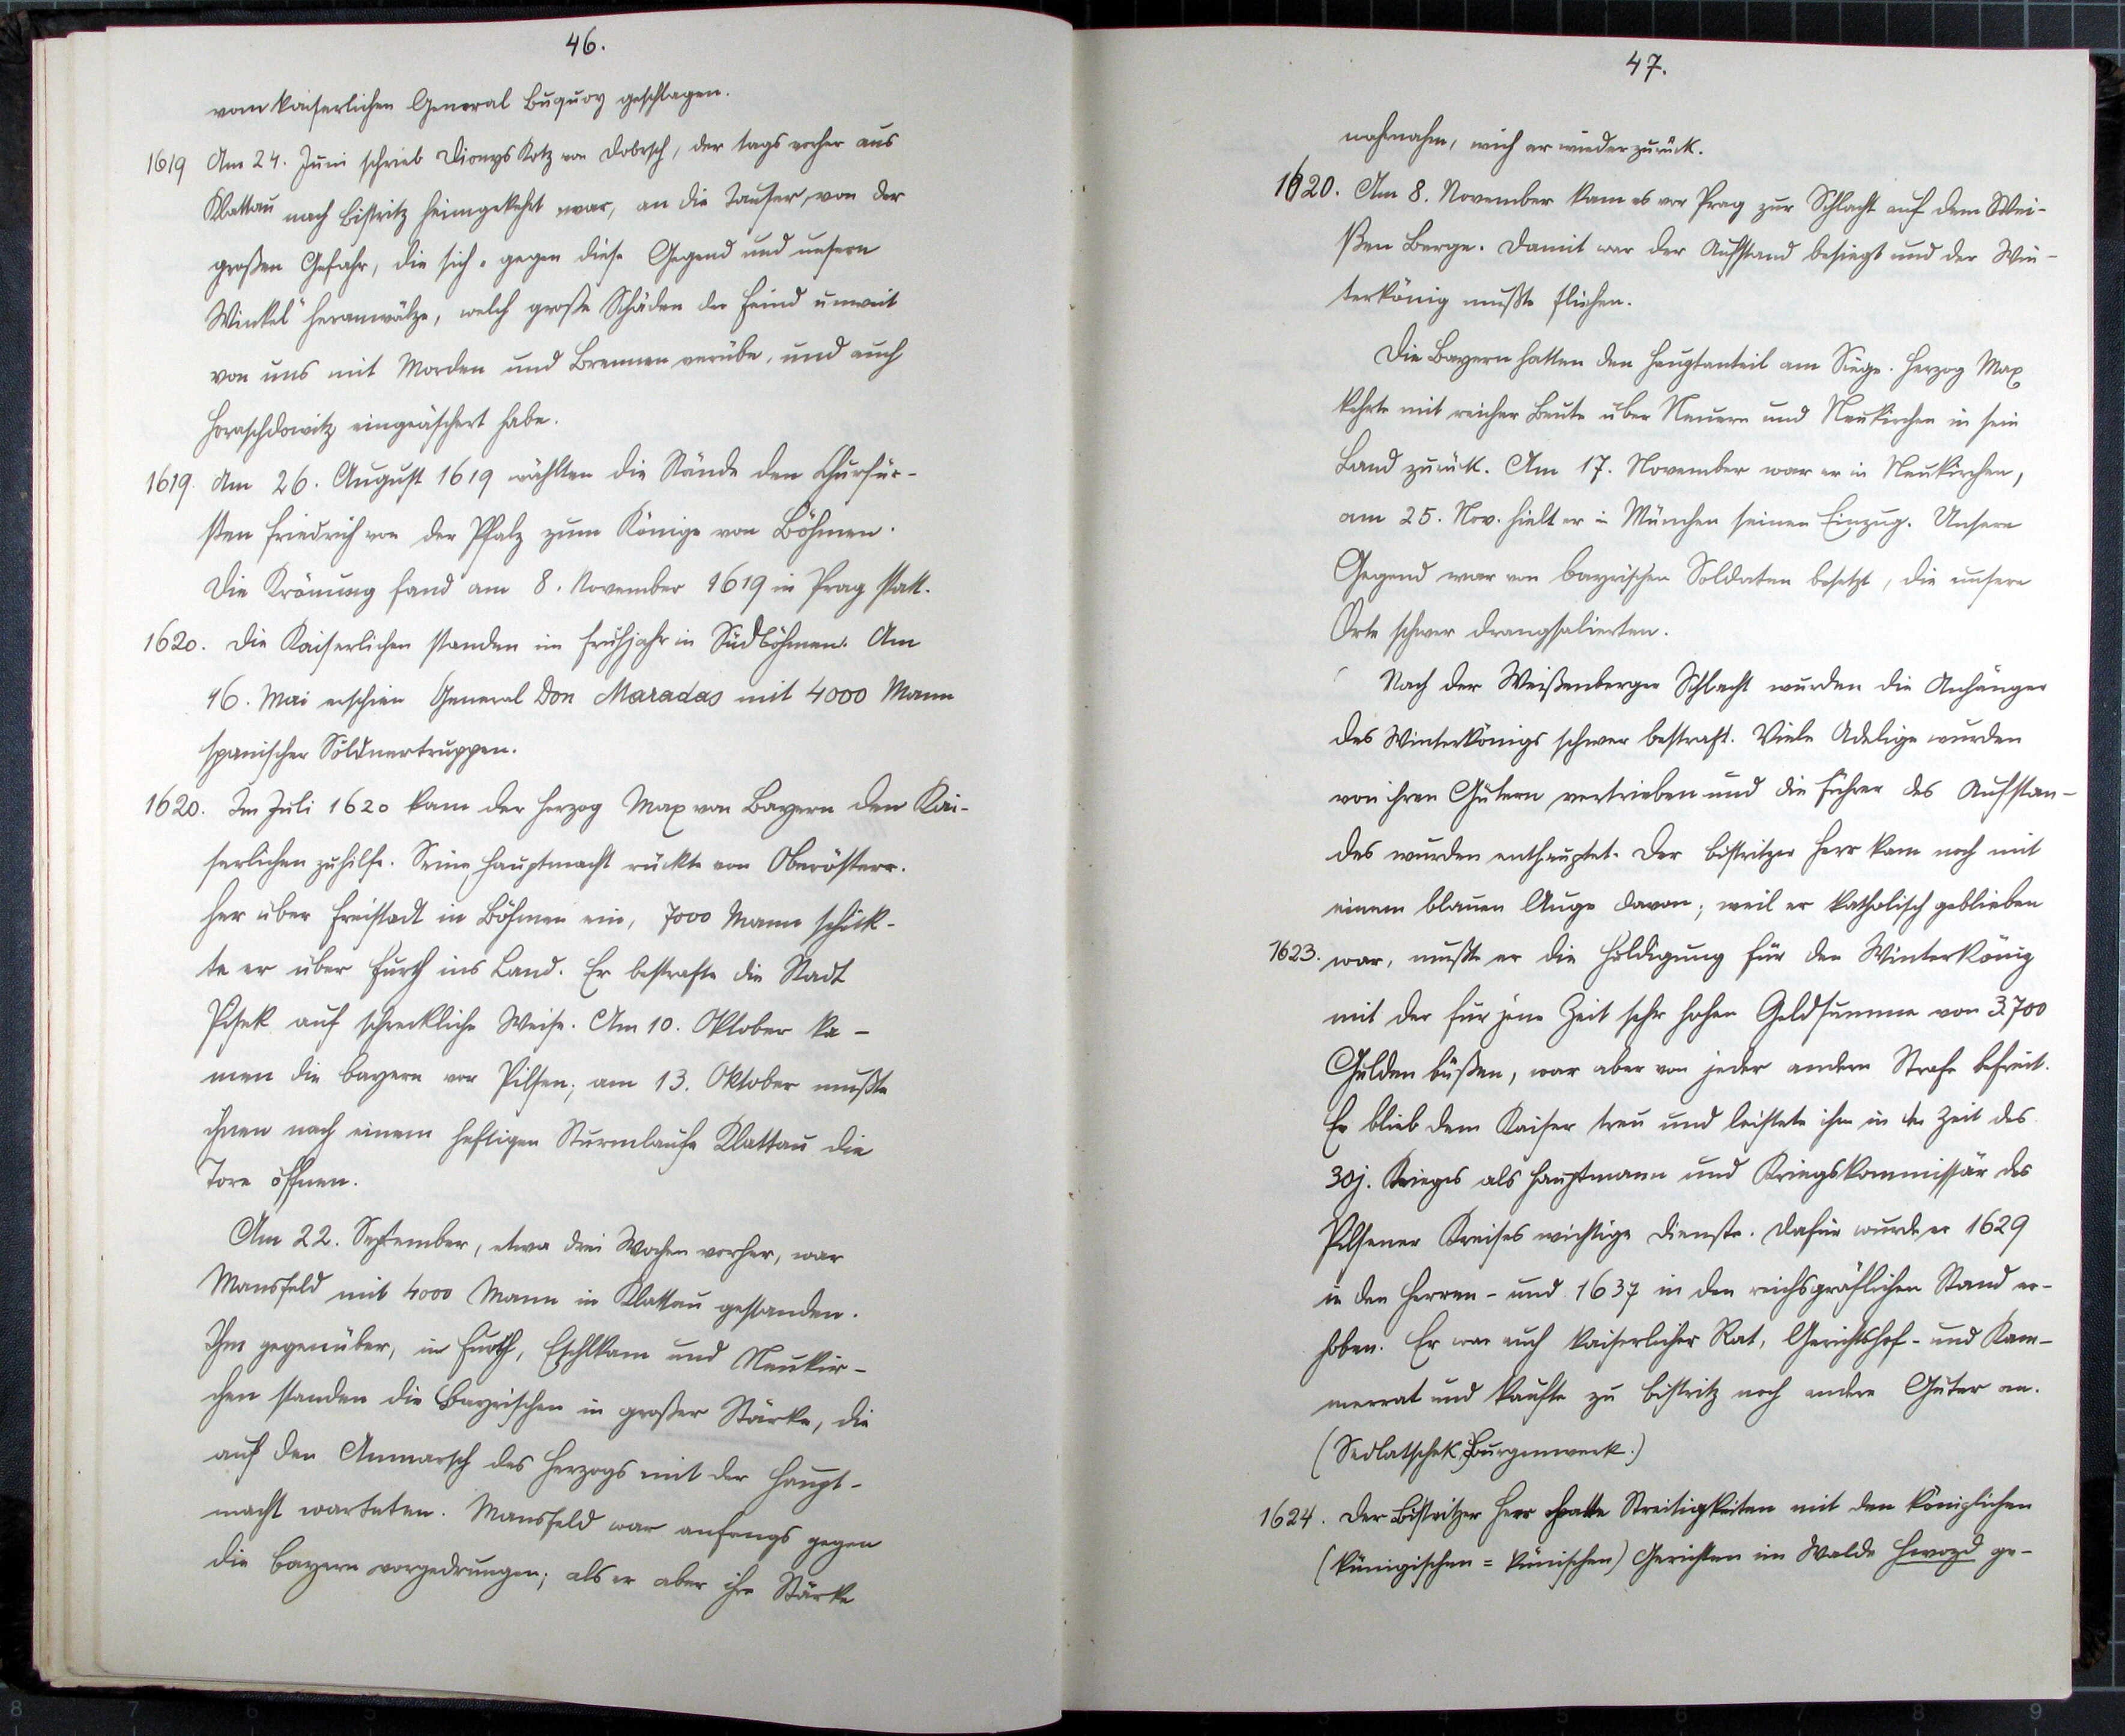 46.
vom kaiserlichen General Buquoy geschlagen.
1619 Am 24. Juni schrieb Dionys Kotz von Dobrsch, der tags vorher aus
Klattau nach Bistritz heimgekehrt war, an die Tauser, von der
großen Gefahr, die sich „gegen diese Gegend und unsern
Winkel“ heranwälze, welch große Schäden der Feind unweit
von uns mit Morden und Brennen verübe, und auch
Horaschdowitz eingeäschert habe.
1619. Am 26. August 1619 wählten die Stände den Churfür-
sten Friedrich von der Pfalz zum Könige von Böhmen.
Die Krönung fand am 8. November 1619 in Prag statt.
1620. Die Kaiserlichen standen im Frühjahr in Südböhmen. Am
16. Mai erschien General Don Maradas mit 4000 Mann
spanischer Söldnertruppen.
1620. Im Juli 1620 kam der Herzog Max von Bayern den Kai-
serlichen zuhilfe. Seine Hauptmacht rückte von Oberösterr.
her über Freistadt in Böhmen ein, 7000 Mann schick-
te er über Furth ins Land. Er bestrafte die Stadt
Pisek auf schreckliche Weise. Am 10. Oktober ka-
men die Bayern vor Pilsen; am 13. Oktober mußte
ihnen nach einem heftigen Sturmlaufe Klattau die
Tore öffnen.
Am 22. September, etwa drei Wochen vorher, war
Mansfeld mit 4000 Mann in Klattau gestanden.
Ihm gegenüber, in Furth, Eschlkam und Neukir-
chen standen die Bayrischen in großer Stärke, die
auf den Anmarsch des Herzogs mit der Haupt-
macht warteten. Mansfeld war anfangs gegen
die Bayern vorgedrungen; als er aber ihre Stärke
47.
wahrnahm, wich er wieder zurück.
1620. Am 8. November kam es vor Prag zur Schlacht auf dem Wei-
ßen Berge. Damit war der Aufstand besiegt und der Win-
terkönig mußte fliehen.
Die Bayern hatten den Hauptanteil am Siege. Herzog Max
kehrte mit reicher Beute über Neuern und Neukirchen in sein
Land zurück. Am 17. November war er in Neukirchen,
am 25. Nov. hielt er in München seinen Einzug. Unsere
Gegend war von bayrischen Soldaten besetzt, die unsere
Orte schwer drangsalierten.
Nach der Weißenberger Schlacht wurden die Anhänger
des Winterkönigs schwer bestraft. Viele Adelige wurden
von ihren Gütern vertrieben und die Führer des Aufstan-
des wurden enthauptet. Der Bistritzer Herr kam noch mit
einem blauen Auge davon; weil er katholisch geblieben
1623. war, mußte er die Huldigung für den Winterkönig
mit der für jene Zeit sehr hohen Geldsumme von 3700
Gulden büßen, war aber von jeder andern Strafe befreit.
Er blieb dem Kaiser treu und leistete ihm in der Zeit des
30j. Krieges als Hauptmann und Kriegskommissär des
Pilsener Kreises wichtige Dienste. Dafür wurde er 1629
in den Herren- und 1637 in den reichsgräflichen Stand er-
hoben. Er war auch kaiserlicher Rat, Gerichtshof- und Kam-
merrat und kaufte zu Bistritz noch andere Güter an.
(Sedlatschek, Burgenwerk.)
1624. Der Bistritzer Herr hatte Streitigkeiten mit den königlichen
(künigischen = künischen) Gerichten im Walde Hwozd ge-